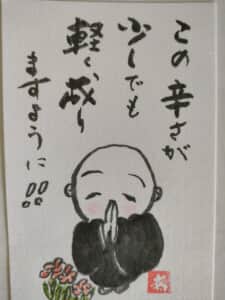 この辛さが
少しでも
軽く成り
ますように